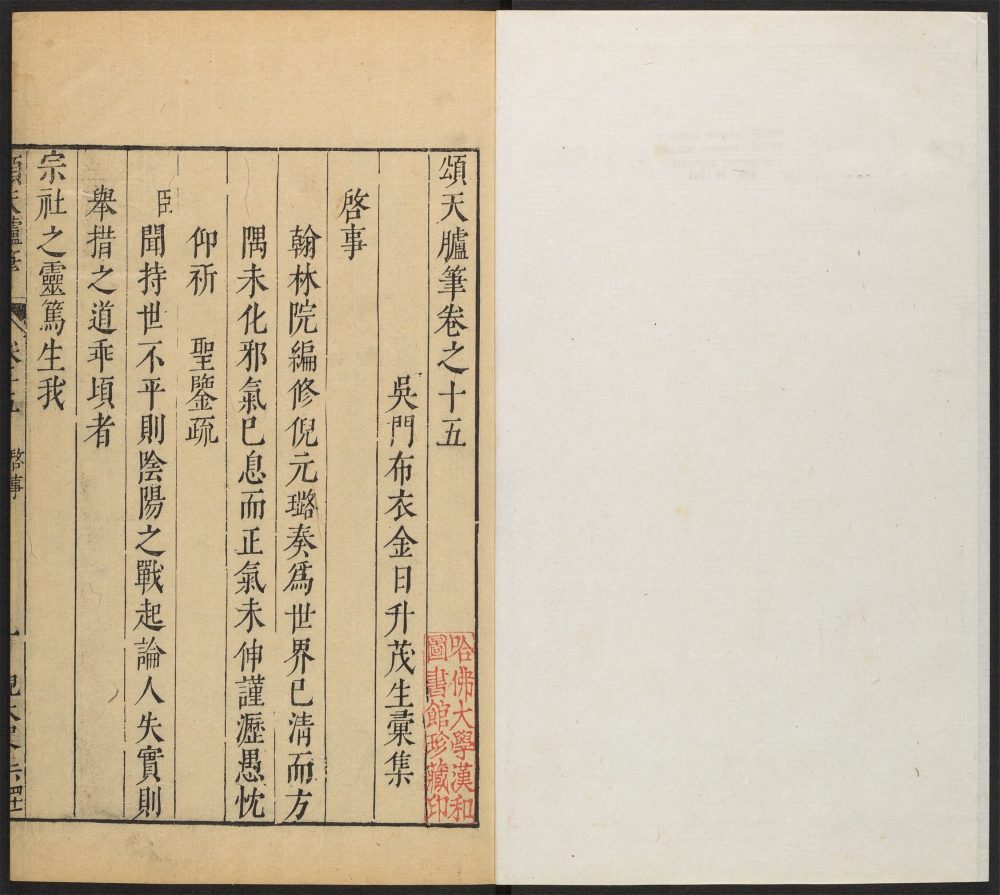 頌天臚筆卷之十五
吳門布衣金日升茂生彙集
啓事
翰林院編修倪元璐奏爲世界已清而方
隅未化邪氣已息而正氣未伸謹瀝愚忱
仰祈 聖鑒疏
臣聞持世不平則陰陽之戰起論人失實則
舉措之道乖頃者
宗社之靈篤生我
頌天臚筆 卷十五 啓事 一
哈佛大學漢和
圖書館珍藏印